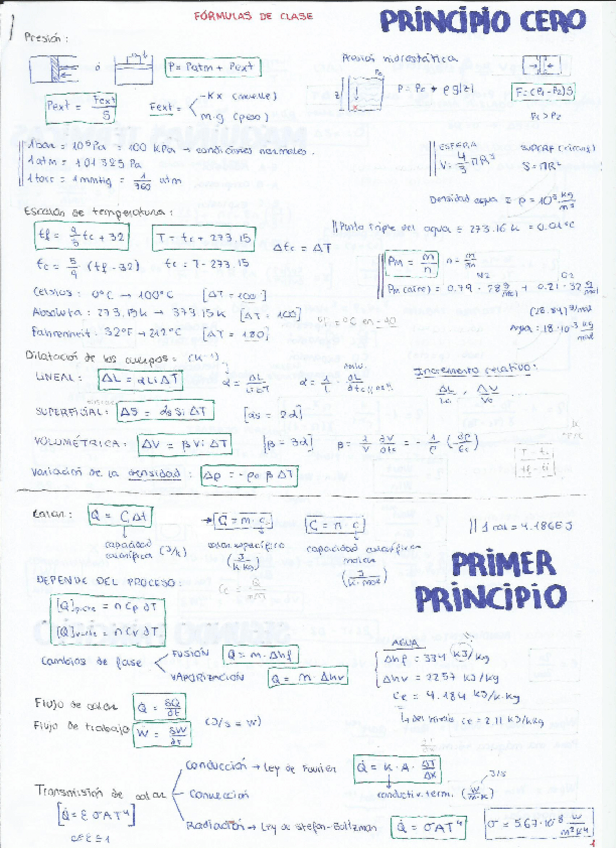 FÓRMULAS DE CLASE
PRINCIPIO CERO
Presión:
ó
P = Patm + Pext
Presión hidrostática
P = Po + ρg|z|
F = (P1 - P2)S
P1 > P2
Pext = Fext/S
Fext =
-Kx (muelle)
m·g (peso)
1 bar = 10⁵ Pa = 100 KPa → condiciones normales.
1 atm = 101325 Pa
1 torr = 1mmHg = 1/760 atm
ESFERA
V = 4/3 πR³
S = πR²
Densidad agua = ρ = 10³ kg/m³
Escalas de temperatura:
tf = 9/5 tc + 32
T = tc + 273.15
Δtc = ΔT
Punto Triple del agua = 273.16 K = 0.01ºC
tc = 5/9 (tf - 32)
tc = T - 273.15
Pm = m/n
n = m/Pm
Celsius: 0ºC → 100ºC [ΔT = 100]
Pm(aire) = 0.79 · 28 g/mol + 0.21 · 32 g/mol
N2
O2
Absoluta: 273.15K → 373.15K [ΔT = 100]
Fahrenheit: 32ºF → 212ºC [ΔT = 180]
Agua = 18·10⁻³ kg/mol
Dilatación de los cuerpos: (K⁻¹)
LINEAL: ΔL = αLiΔT
Incremento relativo:
ΔL/Lo, ΔV/Vo
SUPERFICIAL: ΔS = αsSiΔT [αs = 2α]
VOLUMÉTRICA: ΔV = βViΔT [β = 3α]
Variación de la densidad: Δρ = -ρoβΔT
Calor: Q = CΔt
→ C = m·c
C = n·c
capacidad calorífica (J/k)
calor específico (J/k kg)
capacidad calorífica molar (J/k·mol)
PRIMER
PRINCIPIO
DEPENDE DEL PROCESO:
[Q]p=cte = nCpΔT
[Q]v=cte = nCvΔT
Cambios de fase
FUSIÓN Q = m·Δhf
VAPORIZACIÓN Q = m·Δhv
AGUA
Δhf = 334 kJ/kg
Δhv = 2257 kJ/kg
ce = 4.184 kJ/k·kg
↳ del hielo ce = 2.11 kJ/kkg
Flujo de calor Q̇ = δQ/dt
Flujo de trabajo Ẇ = δW/dt
(J/s = W)
Transmisión de calor
Conducción → Ley de Fourier Q̇ = K·A·ΔT/Δx
J/s
conductiv. term. (W/m·k)
Convección
Radiación → Ley de Stefan-Boltzman Q̇ = σAT⁴
[Q̇ = εσAT⁴]
σ = 5.67·10⁻⁸ W/m²K⁴
1